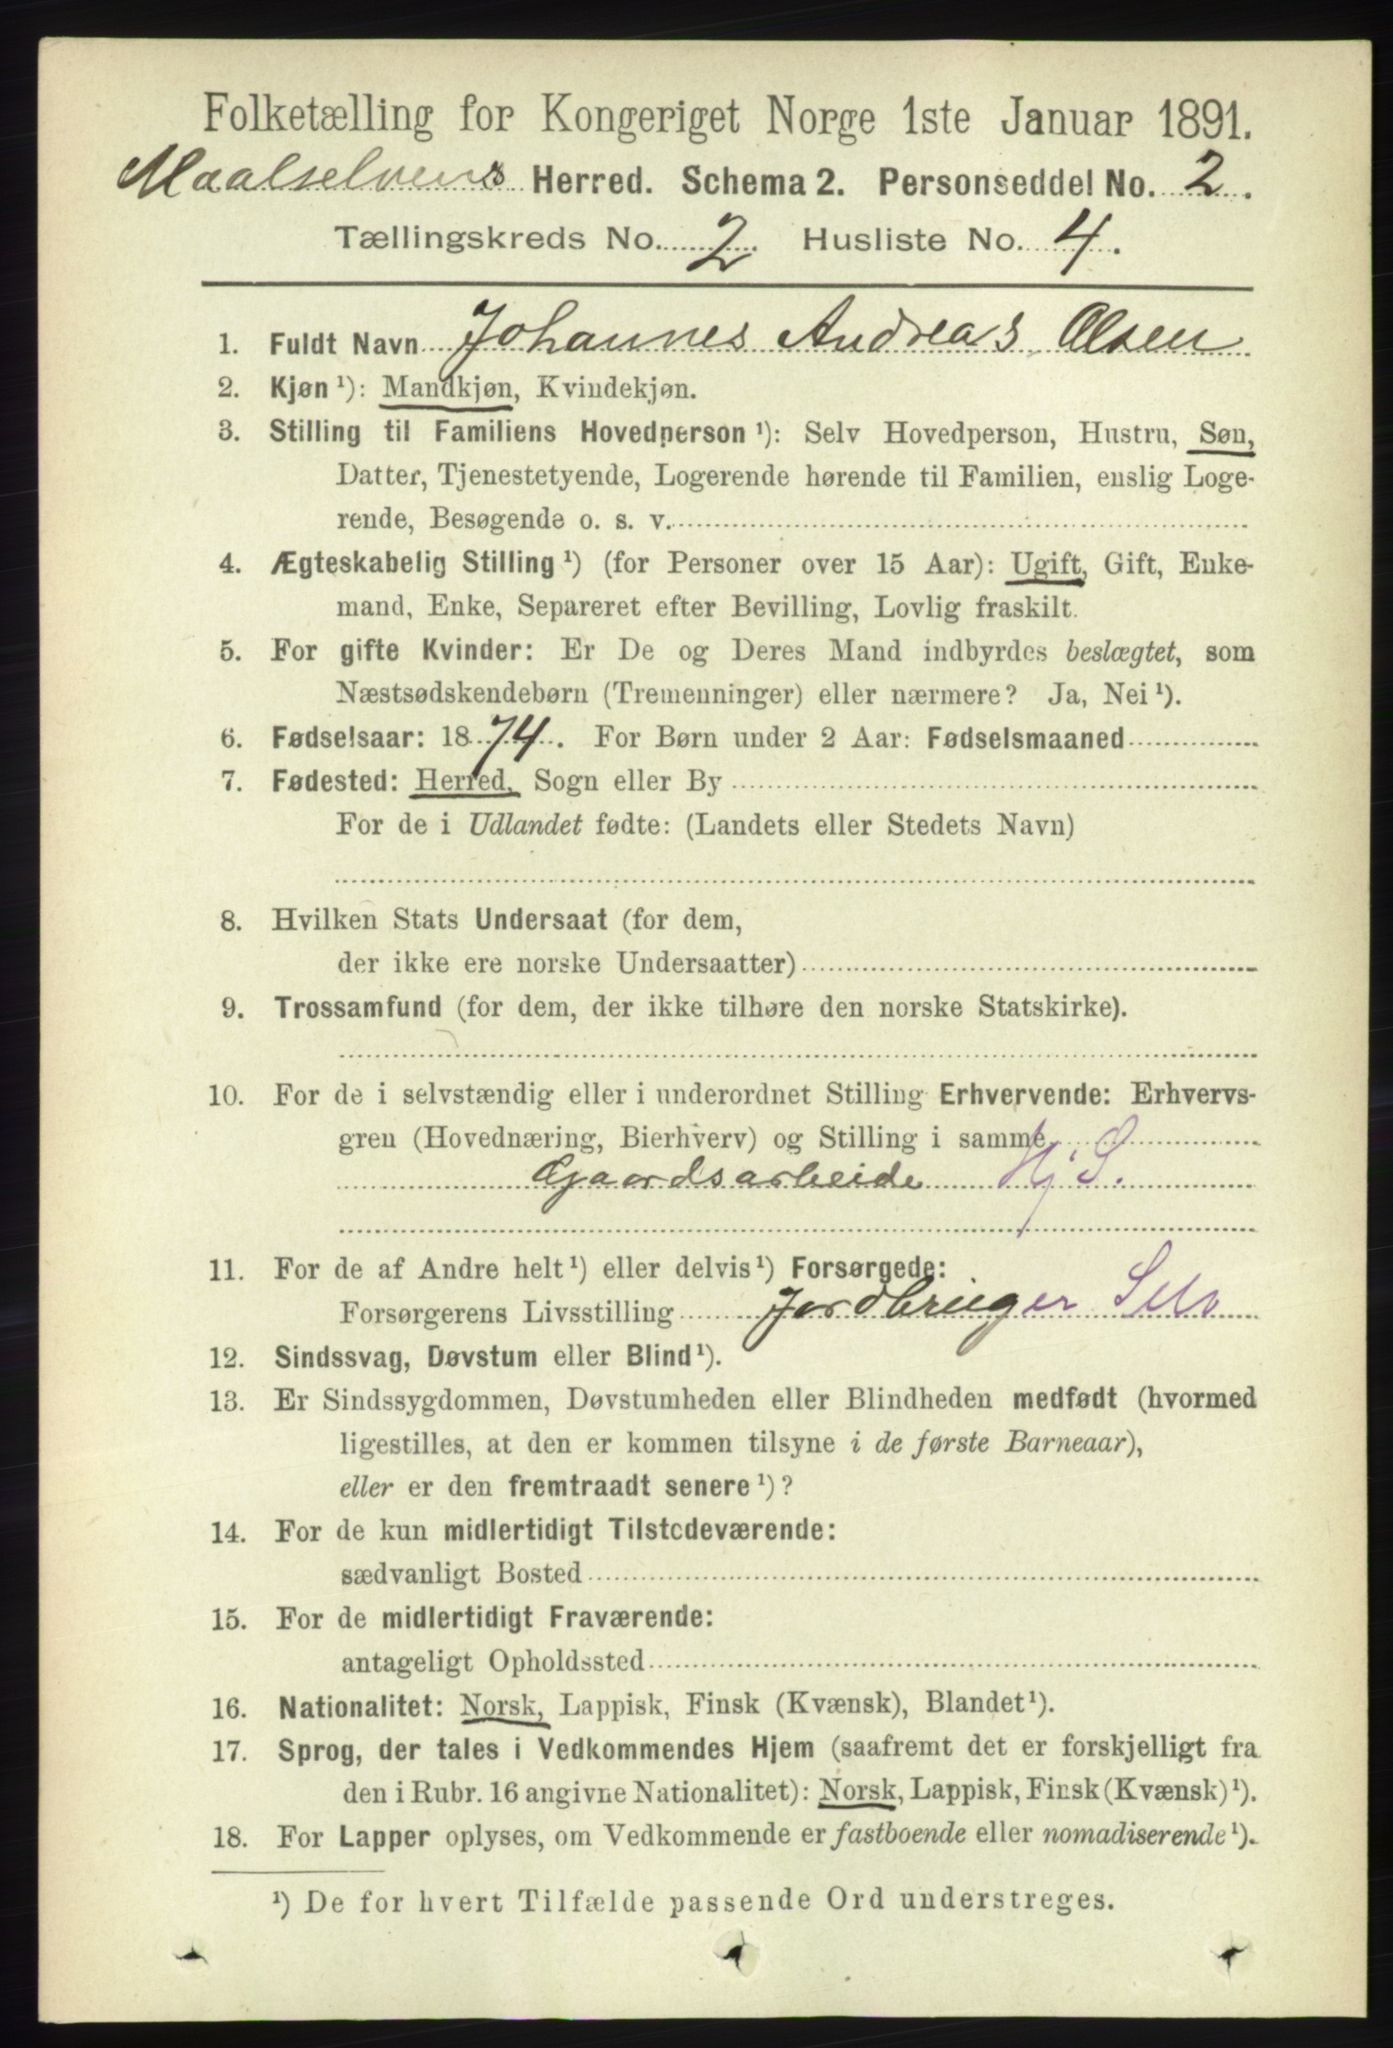 Folketælling for Kongeriget Norge 1ste Januar 1891.
Maalselvens Herred. Schema 2. Personseddel No. 2.
Tællingskreds No. 2. Husliste No. 4.
1. Fuldt Navn Johannes Andreas Olsen
2. Kjøn ¹): Mandkjøn, Kvindekjøn.
3. Stilling til Familiens Hovedperson ¹): Selv Hovedperson, Hustru, Søn,
Datter, Tjenestetyende, Logerende hørende til Familien, enslig Loge-
rende, Besøgende o. s. v.
4. Ægteskabelig Stilling ¹) (for Personer over 15 Aar): Ugift, Gift, Enke-
mand, Enke, Separeret efter Bevilling, Lovlig fraskilt.
5. For gifte Kvinder: Er De og Deres Mand indbyrdes beslægtet, som
Næstsødskendebørn (Tremenninger) eller nærmere? Ja, Nei ¹).
6. Fødselsaar: 1874. For Børn under 2 Aar: Fødselsmaaned
7. Fødested: Herred, Sogn eller By
For de i Udlandet fødte: (Landets eller Stedets Navn)
8. Hvilken Stats Undersaat (for dem,
der ikke ere norske Undersaatter)
9. Trossamfund (for dem, der ikke tilhøre den norske Statskirke).
10. For de i selvstændig eller i underordnet Stilling Erhvervende: Erhvervs-
gren (Hovednæring, Bierhverv) og Stilling i samme
Gaardsarbeide Hj. S.
11. For de af Andre helt ¹) eller delvis ¹) Forsørgede:
Forsørgerens Livsstilling Jordbruger Selv
12. Sindssvag, Døvstum eller Blind ¹).
13. Er Sindssygdommen, Døvstumheden eller Blindheden medfødt (hvormed
ligestilles, at den er kommen tilsyne i de første Barneaar),
eller er den fremtraadt senere ¹)?
14. For de kun midlertidigt Tilstedeværende:
sædvanligt Bosted
15. For de midlertidigt Fraværende:
antageligt Opholdssted
16. Nationalitet: Norsk, Lappisk, Finsk (Kvænsk), Blandet ¹).
17. Sprog, der tales i Vedkommendes Hjem (saafremt det er forskjelligt fra
den i Rubr. 16 angivne Nationalitet): Norsk, Lappisk, Finsk (Kvænsk) ¹).
18. For Lapper oplyses, om Vedkommende er fastboende eller nomadiserende ¹).
¹) De for hvert Tilfælde passende Ord understreges.